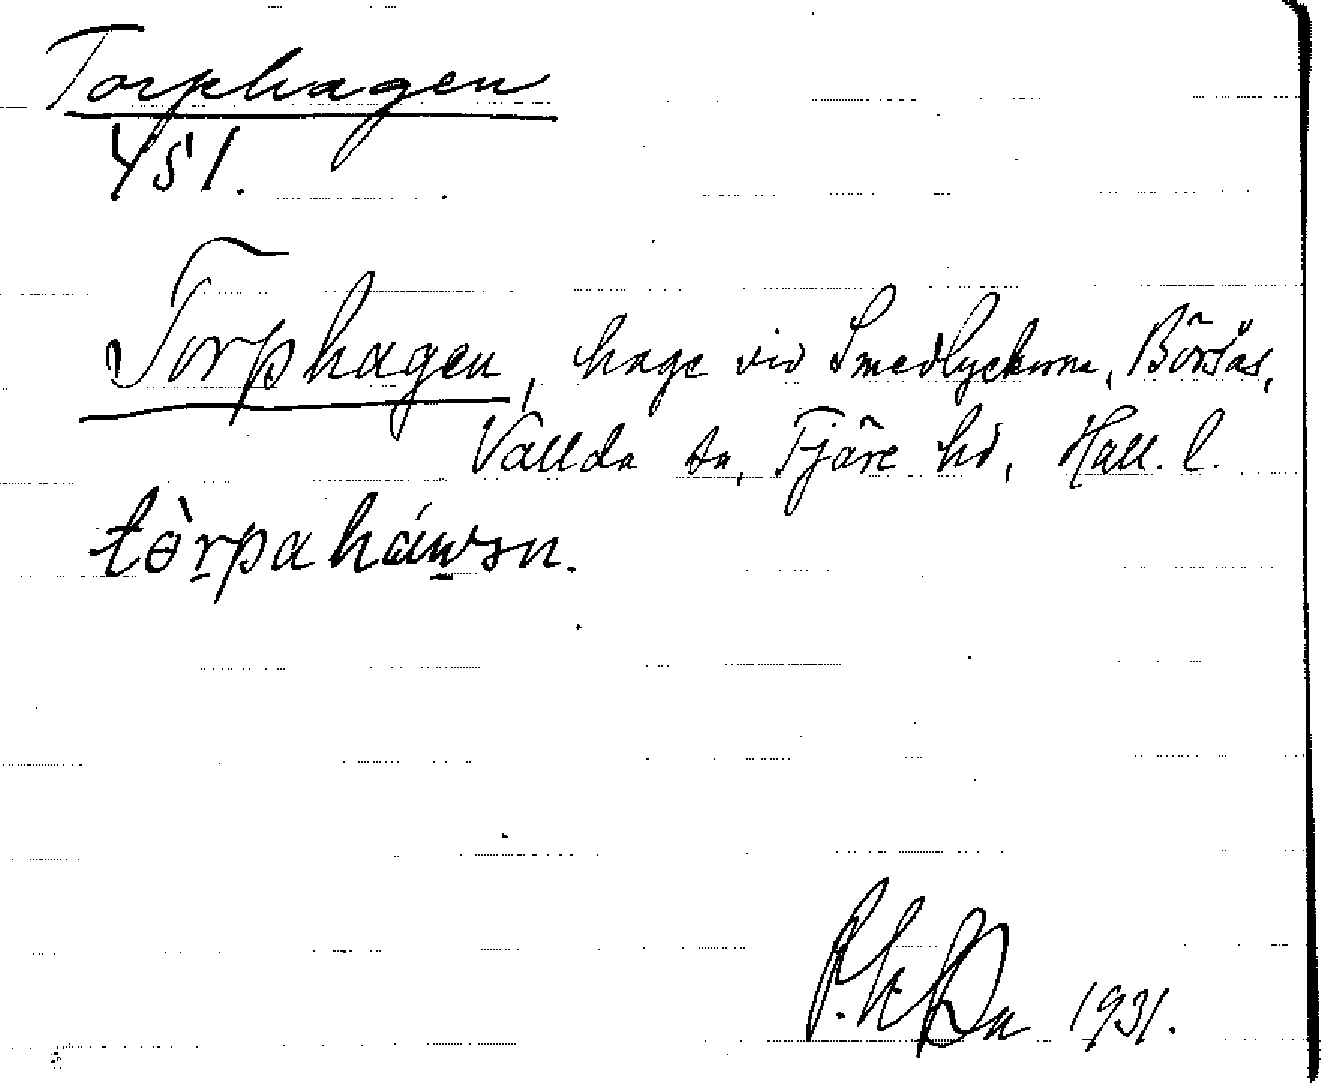 Torphagen
451.
Torphagen, hage vid Smedlyckorna, Börsås,
Vallda sn, Fjäre hd, Hall. l.
1931.